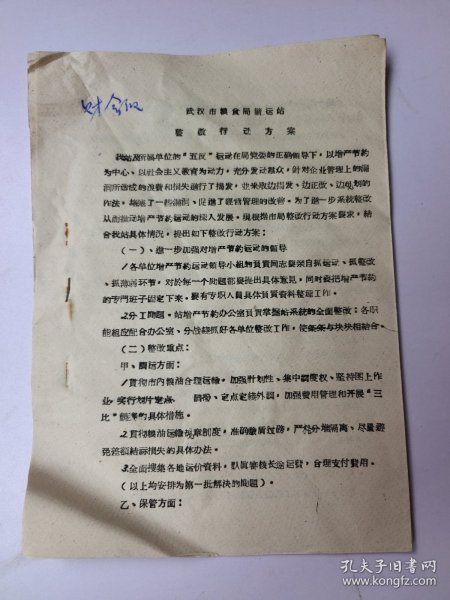 财会组
武汉市粮食局储运站
整改行动方案
我站及所属单位的“五反”运动在局党委的正确领导下，以增产节约
为中心、以社会主义教育为动力，充分发动群众，针对企业管理上的漏
洞所造成的浪费和损失进行了揭发，并采取边揭发、边正改、边规划的
作法，堵塞了一些漏洞，促进了经营管理的改善。为了进一步系统整改
从而推动增产节约运动的深入发展。现根据市局整改行动方案要求，结
合我站具体情况，提出如下整改行动方案：
（一）、进一步加强对增产节约运动的领导
1各单位增产节约运动领导小组的负责同志要亲自抓运动、抓整改
、抓薄弱环节，对于每一个问题都要提出具体意见，同时要把增产节约
的专门班子固定下来。要有专职人员具体负责资料整理工作。
2分工问题。站增产节约办公室负责掌握站系统的全面整改：各职
能组应配合办公室、分战线抓好各单位整改工作，使条条与块块相结合。
（二）整改重点：
甲、调运方面：
1贯彻市内粮油合理运输，加强计划性、集中调度权、坚持图上作
业 实行划片定点 定点定线外调，加强费用管理和开展“三
比”竞赛的具体措施。
2贯彻粮油运输规章制度，准确检斤过磅，严格分堆隔离、尽量避
免差错结亏损失的具体办法。
3全面搜集各地运价资料，认真审核长途运费，合理支付费用。
（以上均安排为第一批解决的问题）。
乙、保管方面：
孔夫子旧书网
www.kongfz.com